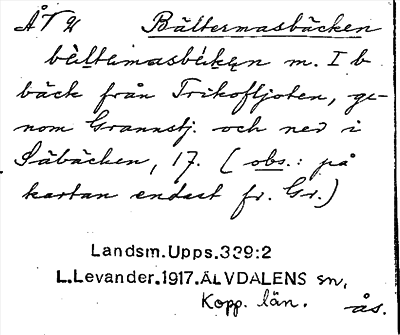 ÅT 21 Bältermasbäcken
bèltɘmasbékɘn m. I b
bäck från Trikofljoten, ge-
nom Grannstj. och ned i
Säbäcken, 17. (obs.: på
kartan endast fr. Gr.)
Landsm.Upps.339:2
L.Levander.1917.ÄLVDALENS sn,
Kopp. län.
ås.